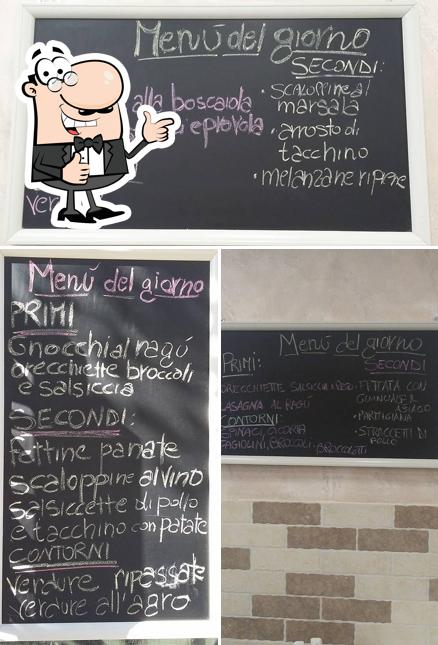 Menú del giorno
alla boscaiola
e provola
ver
SECONDI:
• scaloppine al
marsala
• arrosto di
tacchino
• melanzane ripiene
Menú del giorno
PRIMI
Gnocchi al ragú
orecchiette broccoli
e salsiccia
SECONDI:
fettine panate
scaloppine al vino
salsiccette di pollo
e tacchino con patate
CONTORNI
verdure ripassate
verdure all'agro
Menú del giorno
PRIMI:
ORECCHIETTE SALSICCIA E
LASAGNA AL RAGÚ
CONTORNI
SPINACI, CICORIA
FAGIOLINI, BROCCOLI, BROCCOLETTI
SECONDI
• FRITTATA CON
GUANCIALE E
ASIAGO
• PARTIGIANA
• STRACCETTI DI
POLLO